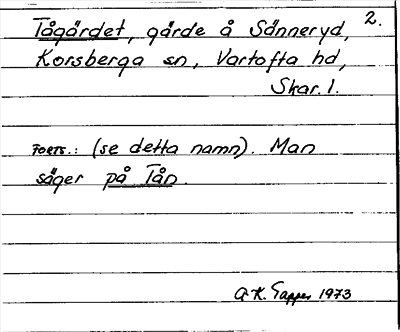 2.
Tågärdet, gärde å Sänneryd,
Korsberga sn, Vartofta hd,
Skar. l.
Forts.: (se detta namn). Man
säger på Tån.
A K. Tapper 1973